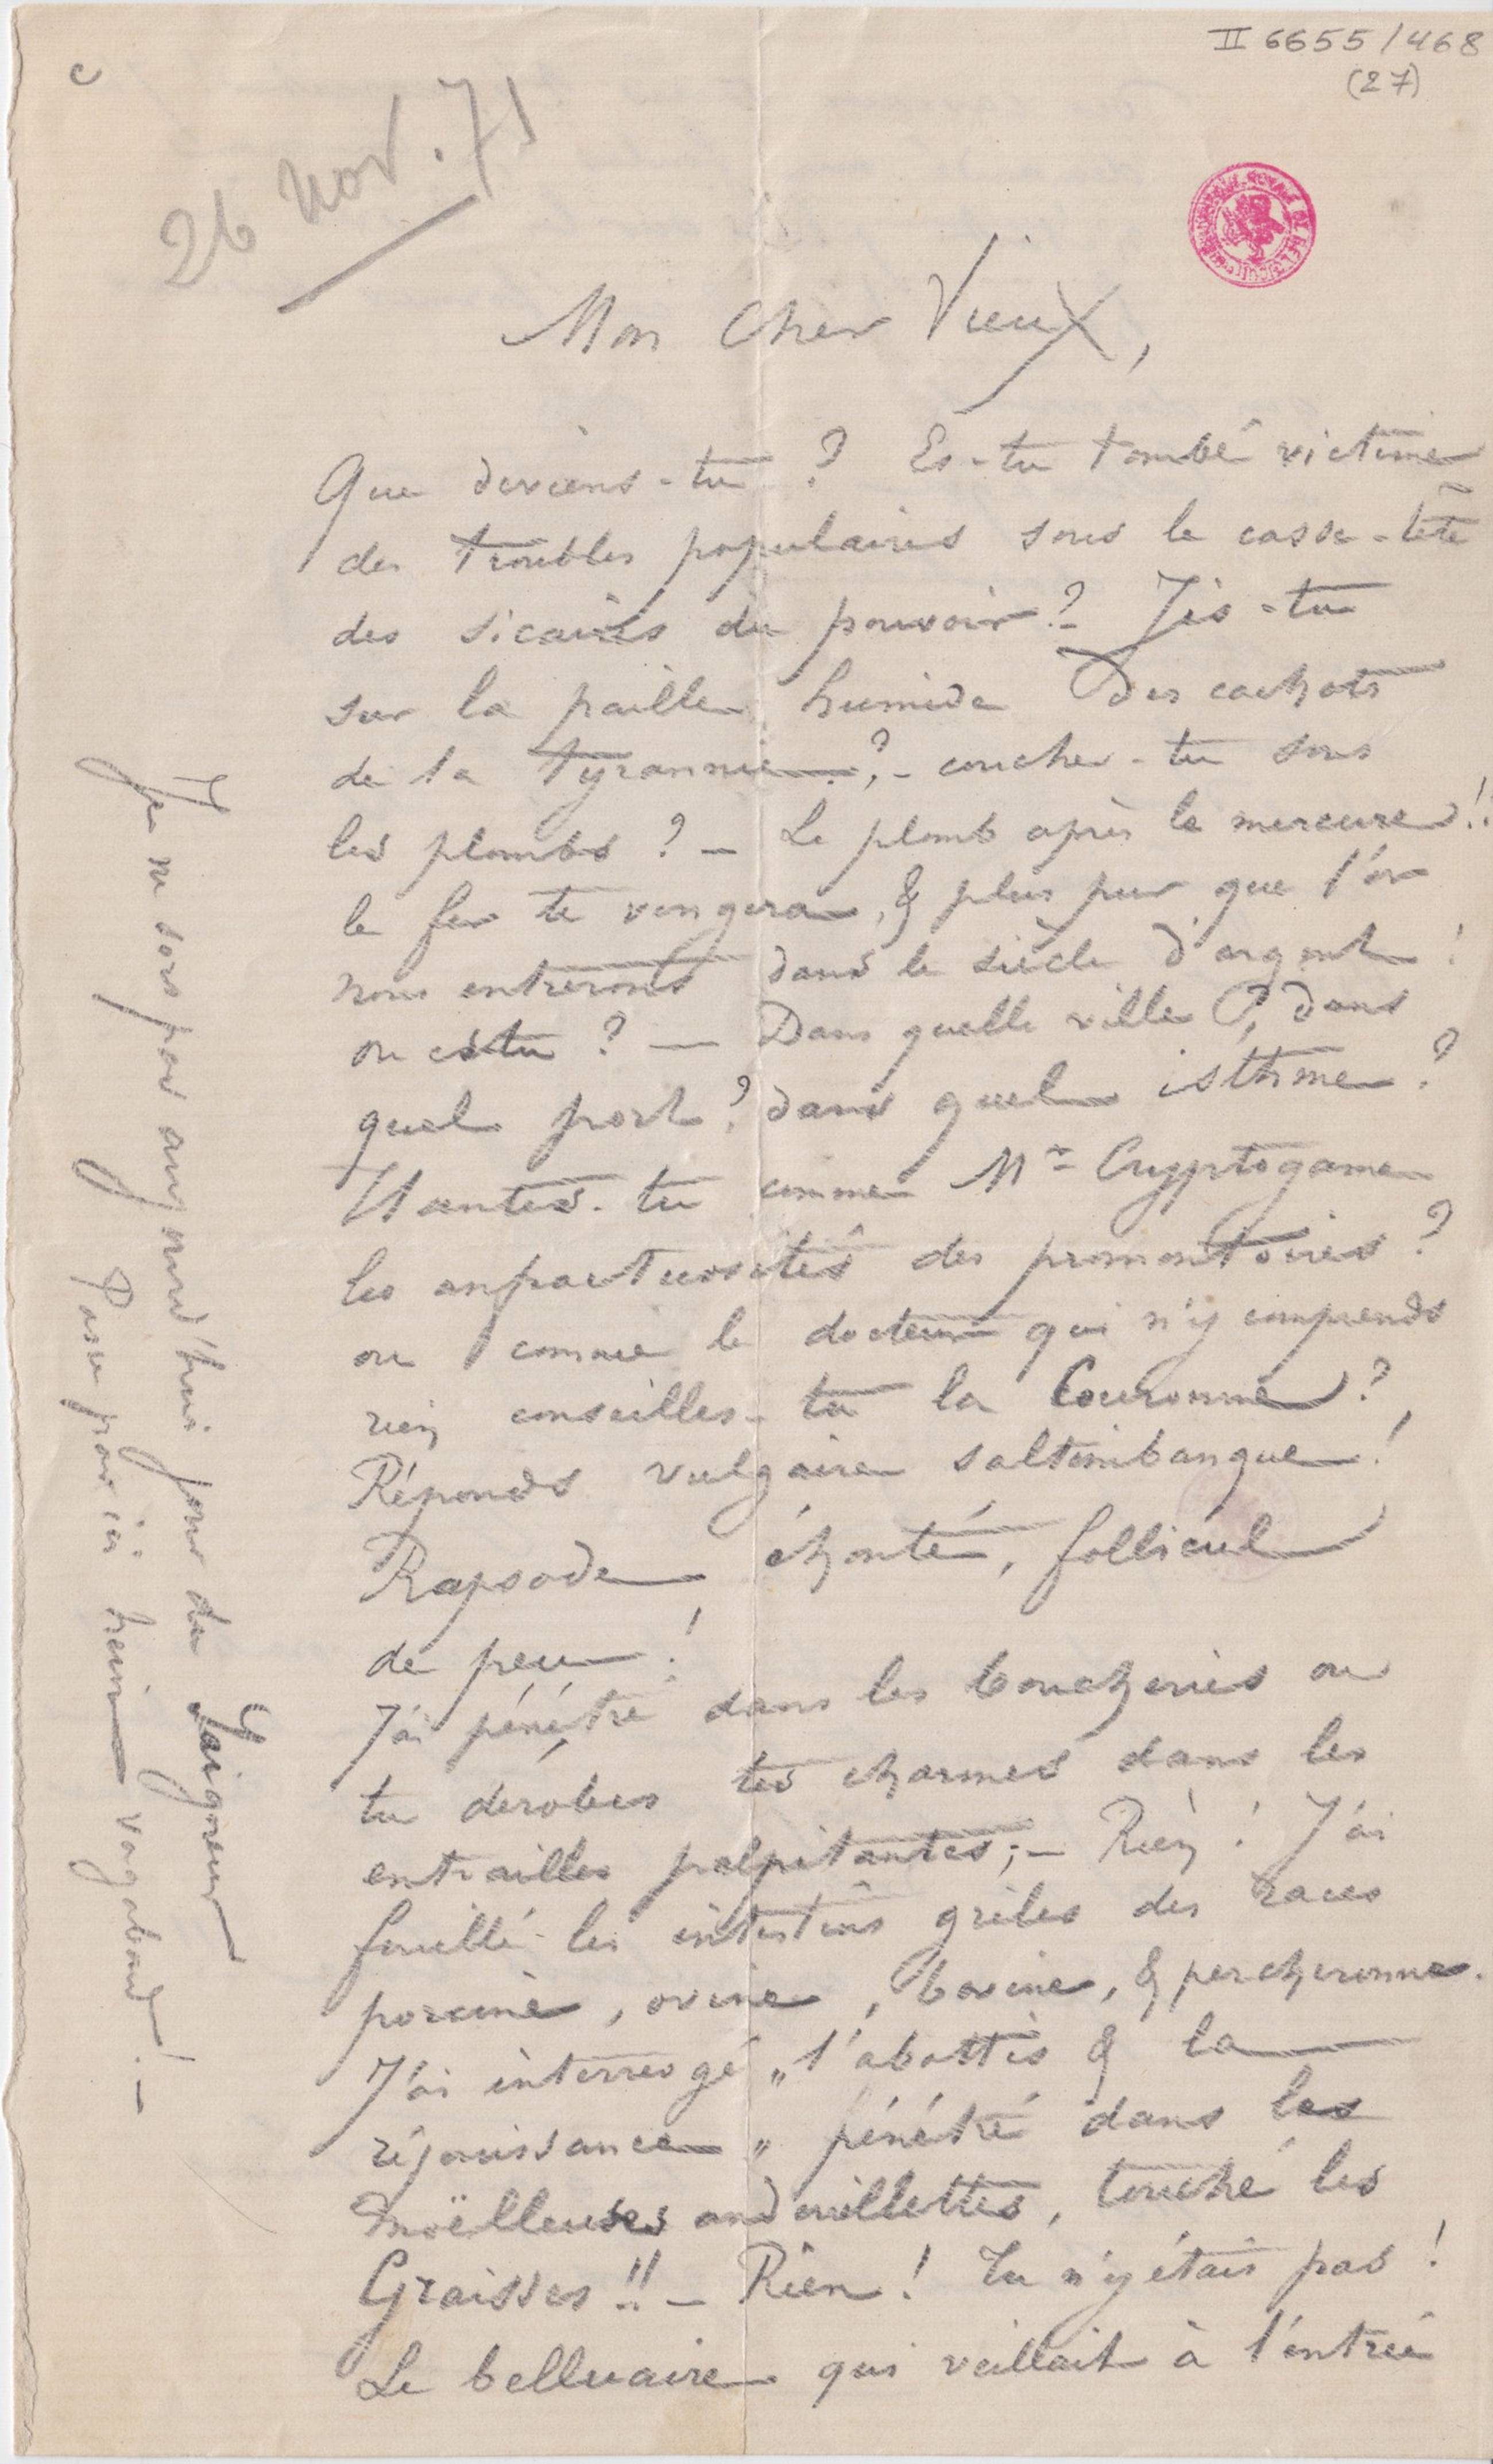 II 6655/468
(27)
c
26 Nov. 71
BIBLIOTHÈQUE ROYALE DE BELGIQUE
Mon Cher Vieux,
Que deviens-tu ? Es-tu tombé victime
des troubles populaires sous le casse-tête
des sicaires du pouvoir ? Gis-tu
sur la paille humide des cachots
de la tyrannie ?, - couches-tu sous
les plombs ? — Le plomb après le mercure !!
le fer te vengera, & plus pur que l'or
nous entrerons dans le siècle d'argent !
ou es tu ? — Dans quelle ville ?, dans
quel port ?, dans quel isthme ?
Hantes-tu comme Mr Cryptogame
les anfractuosités des promontoires ?
ou comme le docteur qui n'y comprends
rien conseilles-tu la Couronne ?
Réponds vulgaire saltimbanque !
Rapsode éhonté, follicul
de peu !
J'ai pénétré dans les boucheries ou
tu dérobes tes charmes dans les
entrailles palpitantes ; — Rien ! J'ai
fouillé les intestins grèles des races
porcine, ovine, bovine, & percheronne.
J'ai interrogé „ l'abattis & la
réjouissance „ pénétré dans les
moëlleuses andouillettes, touché les
Graisses !! — Rien ! Tu n'y étais pas !
Le belluaire qui veillait à l'entrée
Je ne sors pas aujourd'hui jour du Saigneur
Passe par ici hein vagabond ! —